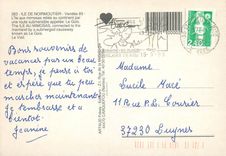 263 - ILE DE NOIRMOUTIER - Vendée 85
L'île aux mimosas reliée au continent par
une route submersible appelée: Le Gois.
The ILE AU MIMOSAS, connected to the
mainland by a submerged causeway
known as Le Gois.
Le Vieil.
Bons souvenirs de
vacances par un beau
temps, je pense à toi
et espère que tu peu
marcher maintenant
Je t'embrasse et à
bientôt.
Jeanine
Madame
Lucile Macé
11 Rue P.L. Courier
37230 Luynes